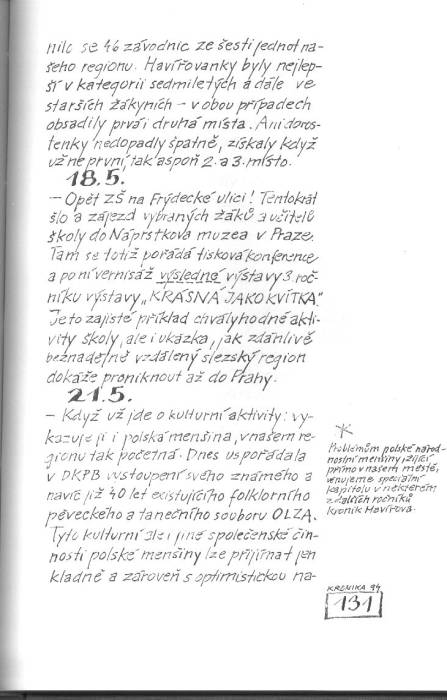 nilo se 46 závodnic ze šesti jednot na-
šeho regionu. Havířovanky byly nejlep-
ší v kategorii sedmiletých a dále ve
starších žákyních – v obou případech
obsadily prvá i druhá místa. Ani doros-
tenky nedopadly špatně, získaly když
už ne první, tak aspoň 2. a 3. místo.
18.5.
– Opět ZŠ na Frýdecké ulici! Tentokrát
šlo a zájezd vybraných žáků a učitelů
školy do Náprstkova muzea v Praze.
Tam se totiž pořádá tisková konference
a po ní vernisáž výsledné výstavy 3. roč-
níku výstavy „KRÁSNÁ JAKO KVÍTKA".
Je to zajisté příklad chvályhodné akti-
vity školy, ale i ukázka, jak zdánlivě
beznadějně vzdálený slezský region
dokáže proniknout až do Prahy.
21.5.
– Když už jde o kulturní aktivity: vy-
kazuje ji i polská menšina, v našem re-
gionu tak početná. Dnes uspořádala
v DKPB vystoupení svého známého a
navíc již 40 let existujícího folklorního
pěveckého a tanečního souboru OLZA.
Tyto kulturní ale i jiné společenské čin-
nosti polské menšiny lze přijímat jen
kladně a zároveň s optimistickou na-
*
Problémům polské národ-
nostní menšiny, žijící
přímo v našem městě,
věnujeme speciální
kapitolu v některém
z dalších ročníků
kronik Havířova.
KRONIKA 94
131